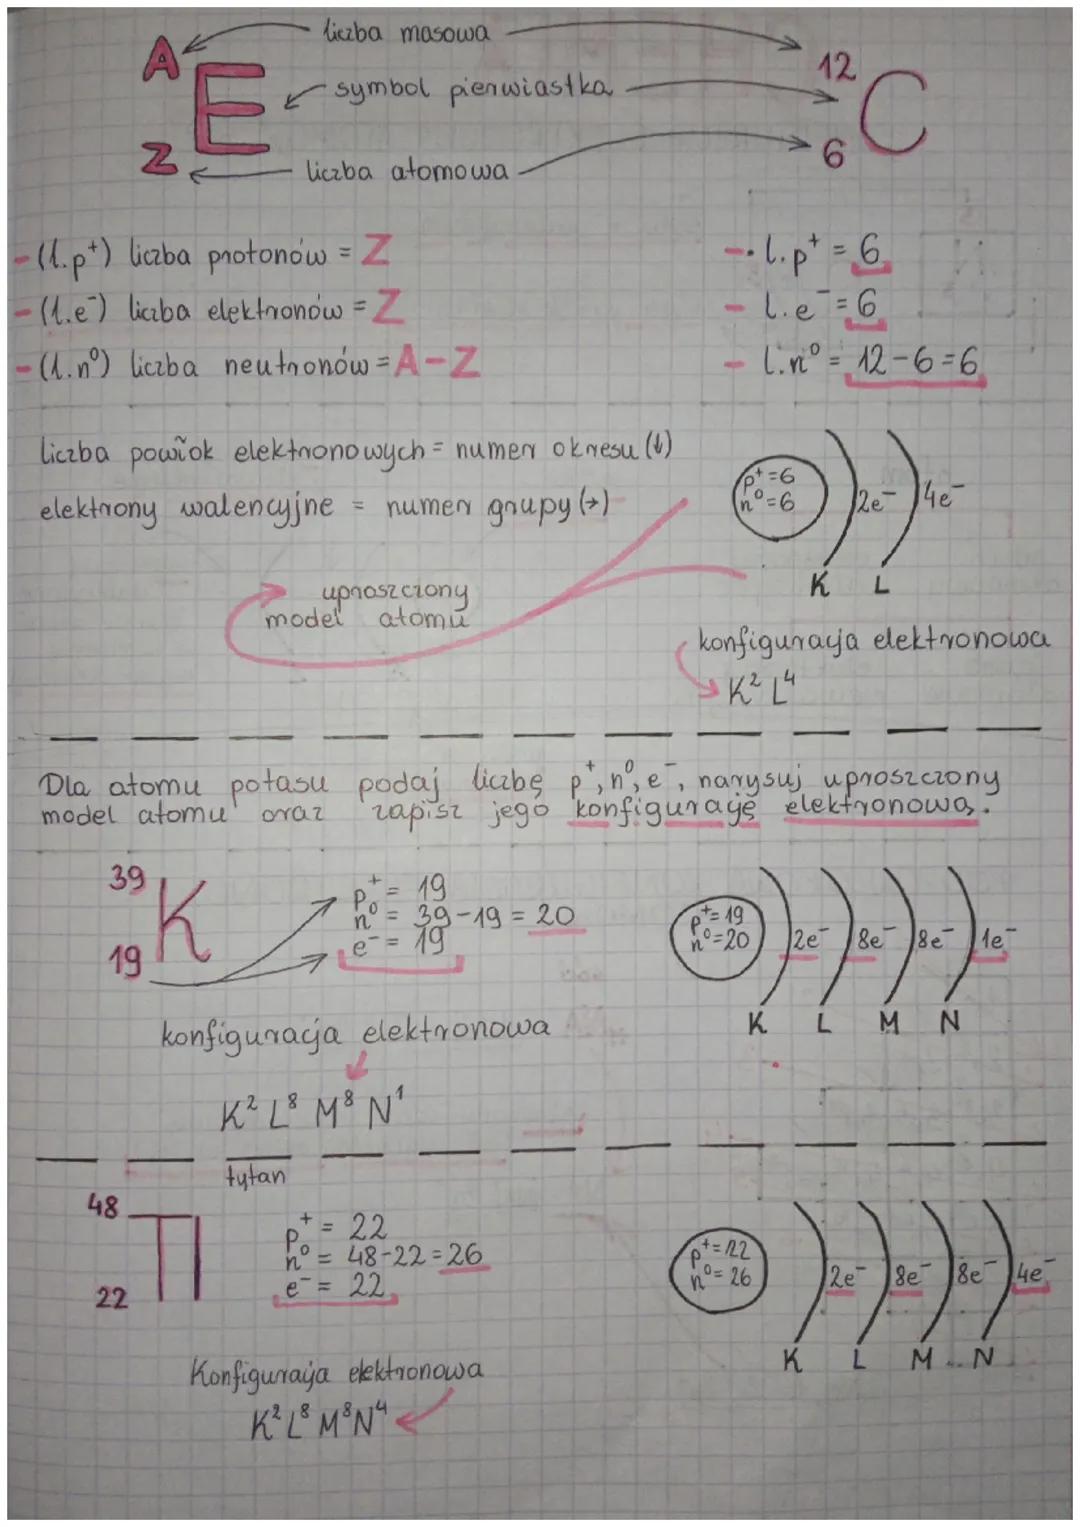 A liczba masowa 12
E symbol pierwiastka C
Z liczba atomowa 6
-(l.p⁺) liczba protonów = Z
-(l.e⁻) liczba elektronów = Z
-(l.n⁰) liczba neutronów = A-Z
-. l.p⁺ = 6
- l.e⁻ = 6
- l.n⁰ = 12-6=6
liczba powłok elektronowych = numer okresu (↓)
elektrony walencyjne = numer grupy (→)
p⁺=6
n⁰=6
2e⁻ 4e⁻
K L
uproszczony
model atomu
konfiguracja elektronowa
K² L⁴
Dla atomu potasu podaj liczbę p⁺, n⁰, e⁻, narysuj uproszczony
model atomu oraz zapisz jego konfigurację elektronową.
39
K
19
p⁺ = 19
n⁰ = 39-19 = 20
e⁻ = 19
p⁺=19
n⁰=20
2e⁻ 8e⁻ 8e⁻ 1e⁻
K L M N
konfiguracja elektronowa
K² L⁸ M⁸ N¹
tytan
48
TI
22
p⁺ = 22
n⁰ = 48-22=26
e⁻ = 22
p⁺=22
n⁰=26
2e⁻ 8e⁻ 8e⁻ 4e⁻
K L M N
Konfiguracja elektronowa
K² L⁸ M⁸ N⁴